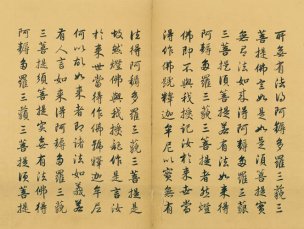 所有法得阿耨多羅三藐三
菩提佛言如是如是須菩提實
無有法如來得阿耨多羅三藐
三菩提須菩提若有法如來得
阿耨多羅三藐三菩提者然燈
佛即不與我授記汝於來世當
得作佛號釋迦牟尼以實無有
法得阿耨多羅三藐三菩提是
故然燈佛與我授記作是言汝
於來世當得作佛號釋迦牟尼
何以故如來者即諸法如義若
有人言如來得阿耨多羅三藐
三菩提須菩提實無有法佛得
阿耨多羅三藐三菩提須菩提